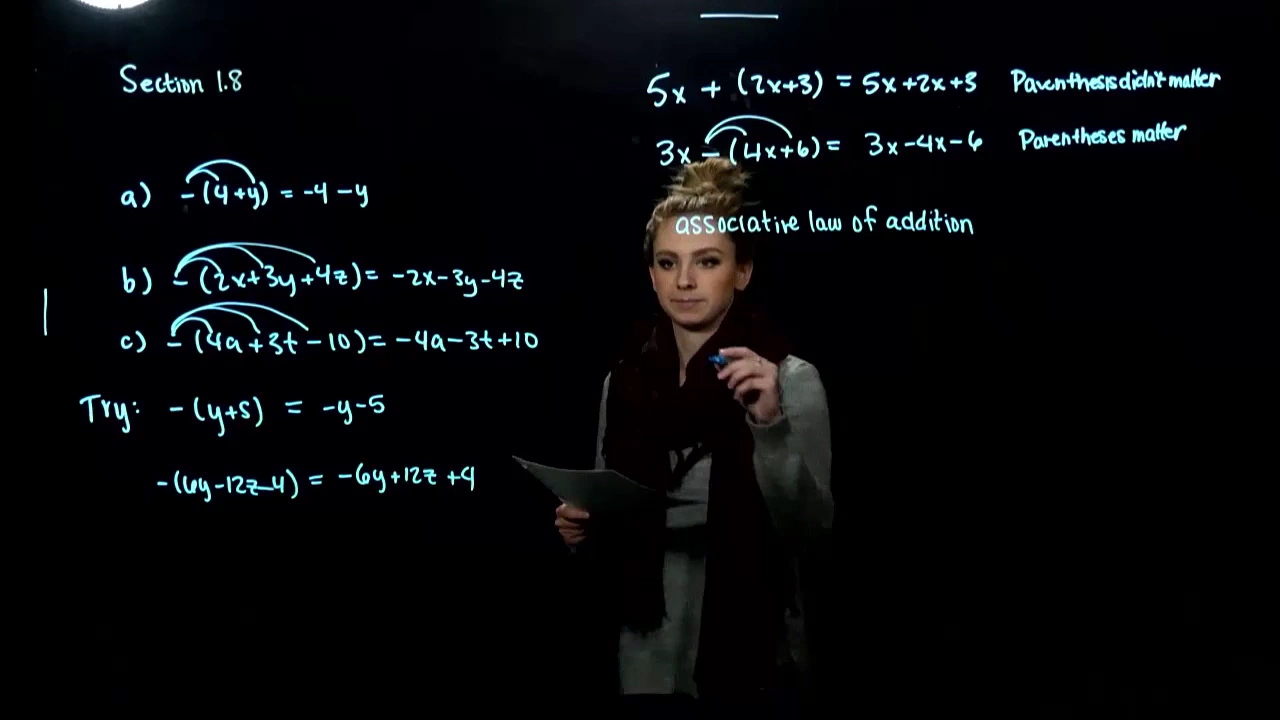 Section 1.8
a) -(4+y) = -4-y
b) -(2x+3y+4z)= -2x-3y-4z
c) -(4a+3t-10)= -4a-3t+10
Try: -(y+5) = -y-5
-(6y-12z-4) = -6y+12z+4
5x + (2x+3) = 5x+2x+3 Parenthesis didn't matter
3x -(4x+6)= 3x-4x-6 Parentheses matter
associative law of addition